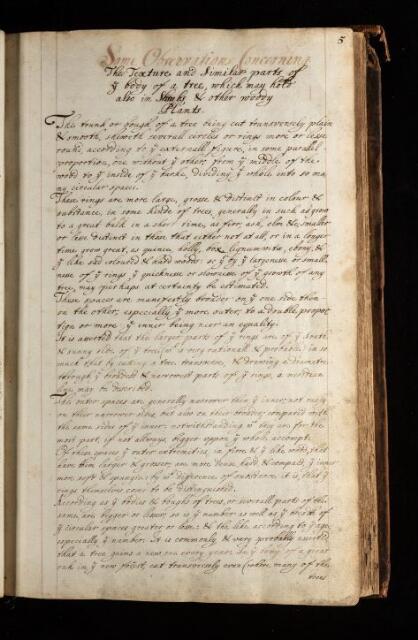 5
Some Observations Concerning
The Texture and Similar parts of
y body of a tree, which may hold
also in Shrubs & other woody
Plants.
The trunk or bough of a tree being cut transversely plain
& smooth, sheweth severall circles or rings more or lesse
round, according to y externall figure, in some parallel
proportion, one without y other, from y middle of the
wood to y inside of y barke, dividing y whole into so ma
ny circular spaces.
These rings are more large, grosse & distinct in colour &
substance, in some kinds of trees, generally in such as grow
to a great bulk in a short time, as firr, ash, elm &c, smaller
or less distinct in those that either not at all, or in a longer
time, grow great, as quince, holly, box, Lignum-vitæ, ebony, &
y like sad coloured & hard woods: so y by y largeness or small-
ness of y rings, y quickness or slowness of y growth of any
tree, may perhaps at certainty be estimated.
These spaces are manifestly broader on y one side then
on the other, especially y more outer, to a double propor
tion or more, y inner being neer an equality.
It is asserted that the larger parts of y rings are of y South
& sunny side of y tree is very rationall & probable in so
much that by cutting a tree transverse, & drawing a diametre
through y broadest & narrowest parts of y rings, a meridian
line may be described.
The outer spaces are generally narrower then y inner, not only
on their narrower sides, but also on their broader, compared with
the same sides of y inner: notwithstanding w they are for the
most part, if not always, bigger upon y whole accompt.
Of these spaces y outer extremities, in firre & y like woods, that
have them larger & grosser, are more dense, hard & compact, y inner
more soft & spungie, by w difference of substance it is that y
rings themselves come to be distinguished.
According as y bodies & boughs of trees, or severall parts of the
same, are bigger or lesser, so is y number as well as y breadth of
y circular spaces greater or lesse: & the like according to y age
especially y number. It is commonly & very probably asserted
that a tree gains a new one every yeare. In y body of a great
oak in y new forest, cut transversely even (where many of the
trees